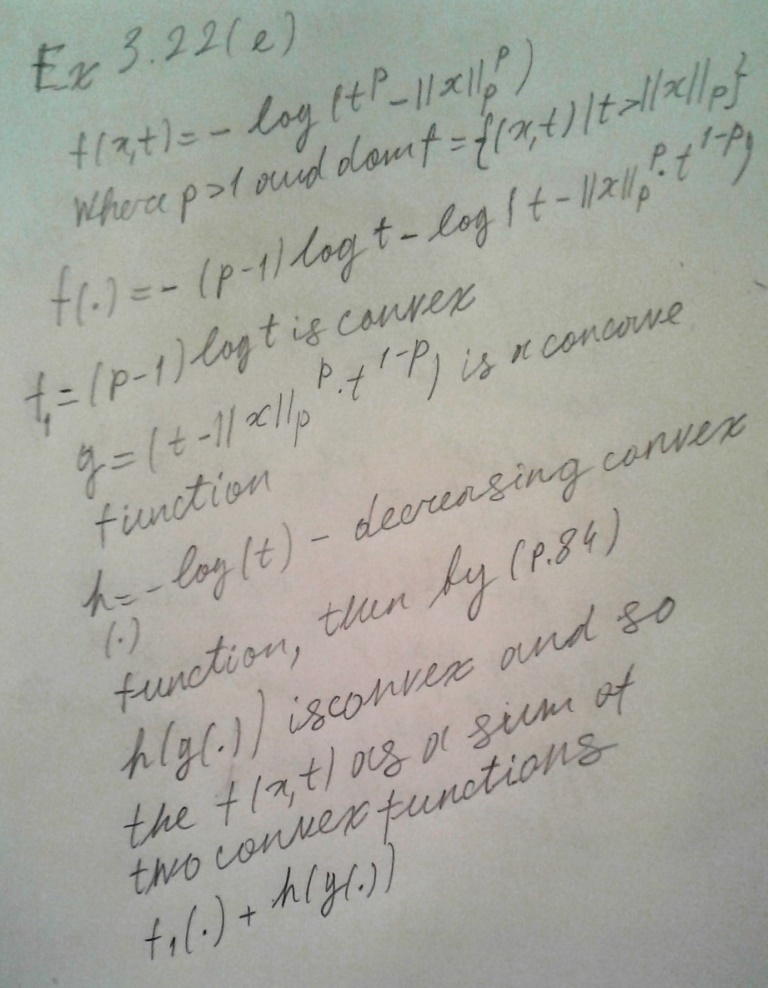 Ex 3.22(e)
f(x,t) = - log(t^p - ||x||_p^p)
where p>1 and dom f = {(x,t) | t > ||x||_p}
f(.) = - (p-1) log t - log (t - ||x||_p^p . t^{1-p})
f_1 = (p-1) log t is convex
g = (t - ||x||_p^p . t^{1-p}) is x concave
function
h(.) = - log(t) - decreasing convex
function, then by (p.84)
h(g(.)) is convex and so
the f(x,t) as a sum of
two convex functions
f_1(.) + h(g(.))